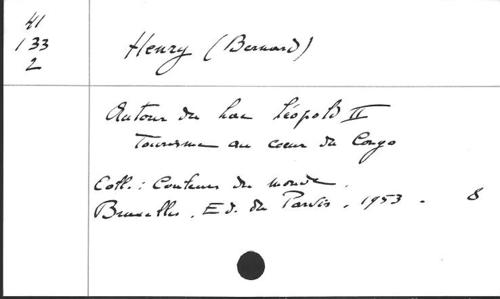 41
133
2
Henry (Bernard)
Autour du lac Léopold II
Tourisme au cœur du Congo
Coll. : Couleurs du monde.
Bruxelles, Ed. du Parvis, 1953. 8